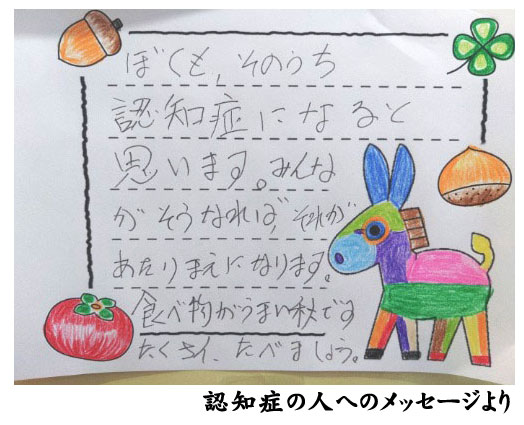 ぼくも、そのうち
認知症になると
思います。みんな
がそうなれば、それが
あたりまえになります。
食べ物がうまい秋です
たくさん、たべましょう。
認知症の人へのメッセージより